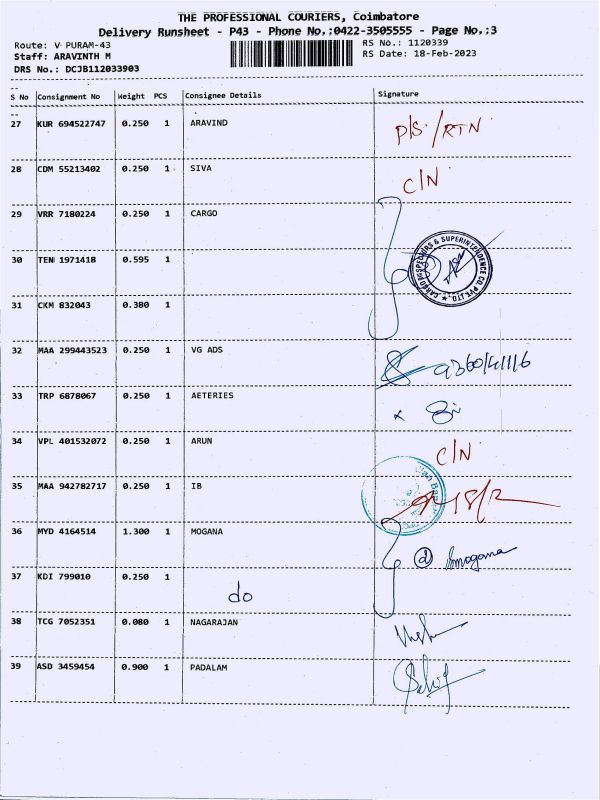 THE PROFESSIONAL COURIERS, Coimbatore
Delivery Runsheet - P43 - Phone No.;0422-3505555 - Page No.;3
Route: V PURAM-43
Staff: ARAVINTH M
DRS No.: DCJB112033903
RS No.: 1120339
RS Date: 18-Feb-2023
S No Consignment No Weight PCS Consignee Details Signature
27 KUR 694522747 0.250 1 ARAVIND P/S /RTN
28 CDM 55213402 0.250 1 SIVA C/N
29 VRR 7180224 0.250 1 CARGO
30 TEN 1971418 0.595 1
CARGO INSPECTORS & SUPERINTENDENCE CO. PVT. LTD.
31 CKM 832043 0.380 1
32 MAA 299443523 0.250 1 VG ADS
33 TRP 6878067 0.250 1 AETERIES
34 VPL 401532072 0.250 1 ARUN C/N
35 MAA 942782717 0.250 1 IB 18/2
36 MYD 4164514 1.300 1 MOGANA Smogana
37 KDI 799010 0.250 1 do
38 TCG 7052351 0.080 1 NAGARAJAN
39 ASD 3459454 0.900 1 PADALAM